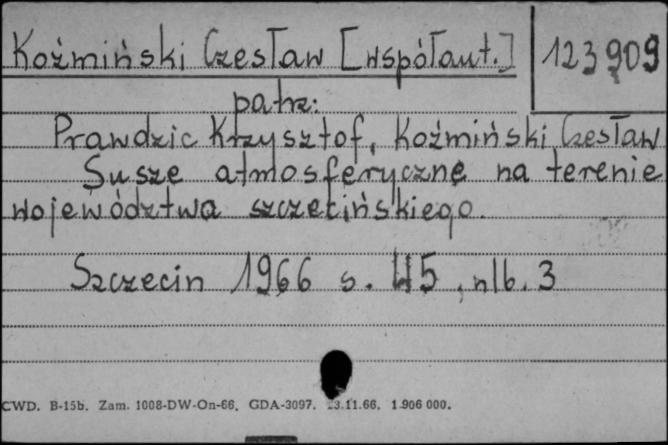 Koźmiński Czesław [współaut.]
123909
patrz:
Prawdzic Krzysztof, Koźmiński Czesław
Susze atmosferyczne na terenie
województwa szczecińskiego.
Szczecin 1966 s. 45, nlb. 3
CWD. B-15b. Zam. 1008-DW-On-66. GDA-3097. 23.11.66. 1 906 000.